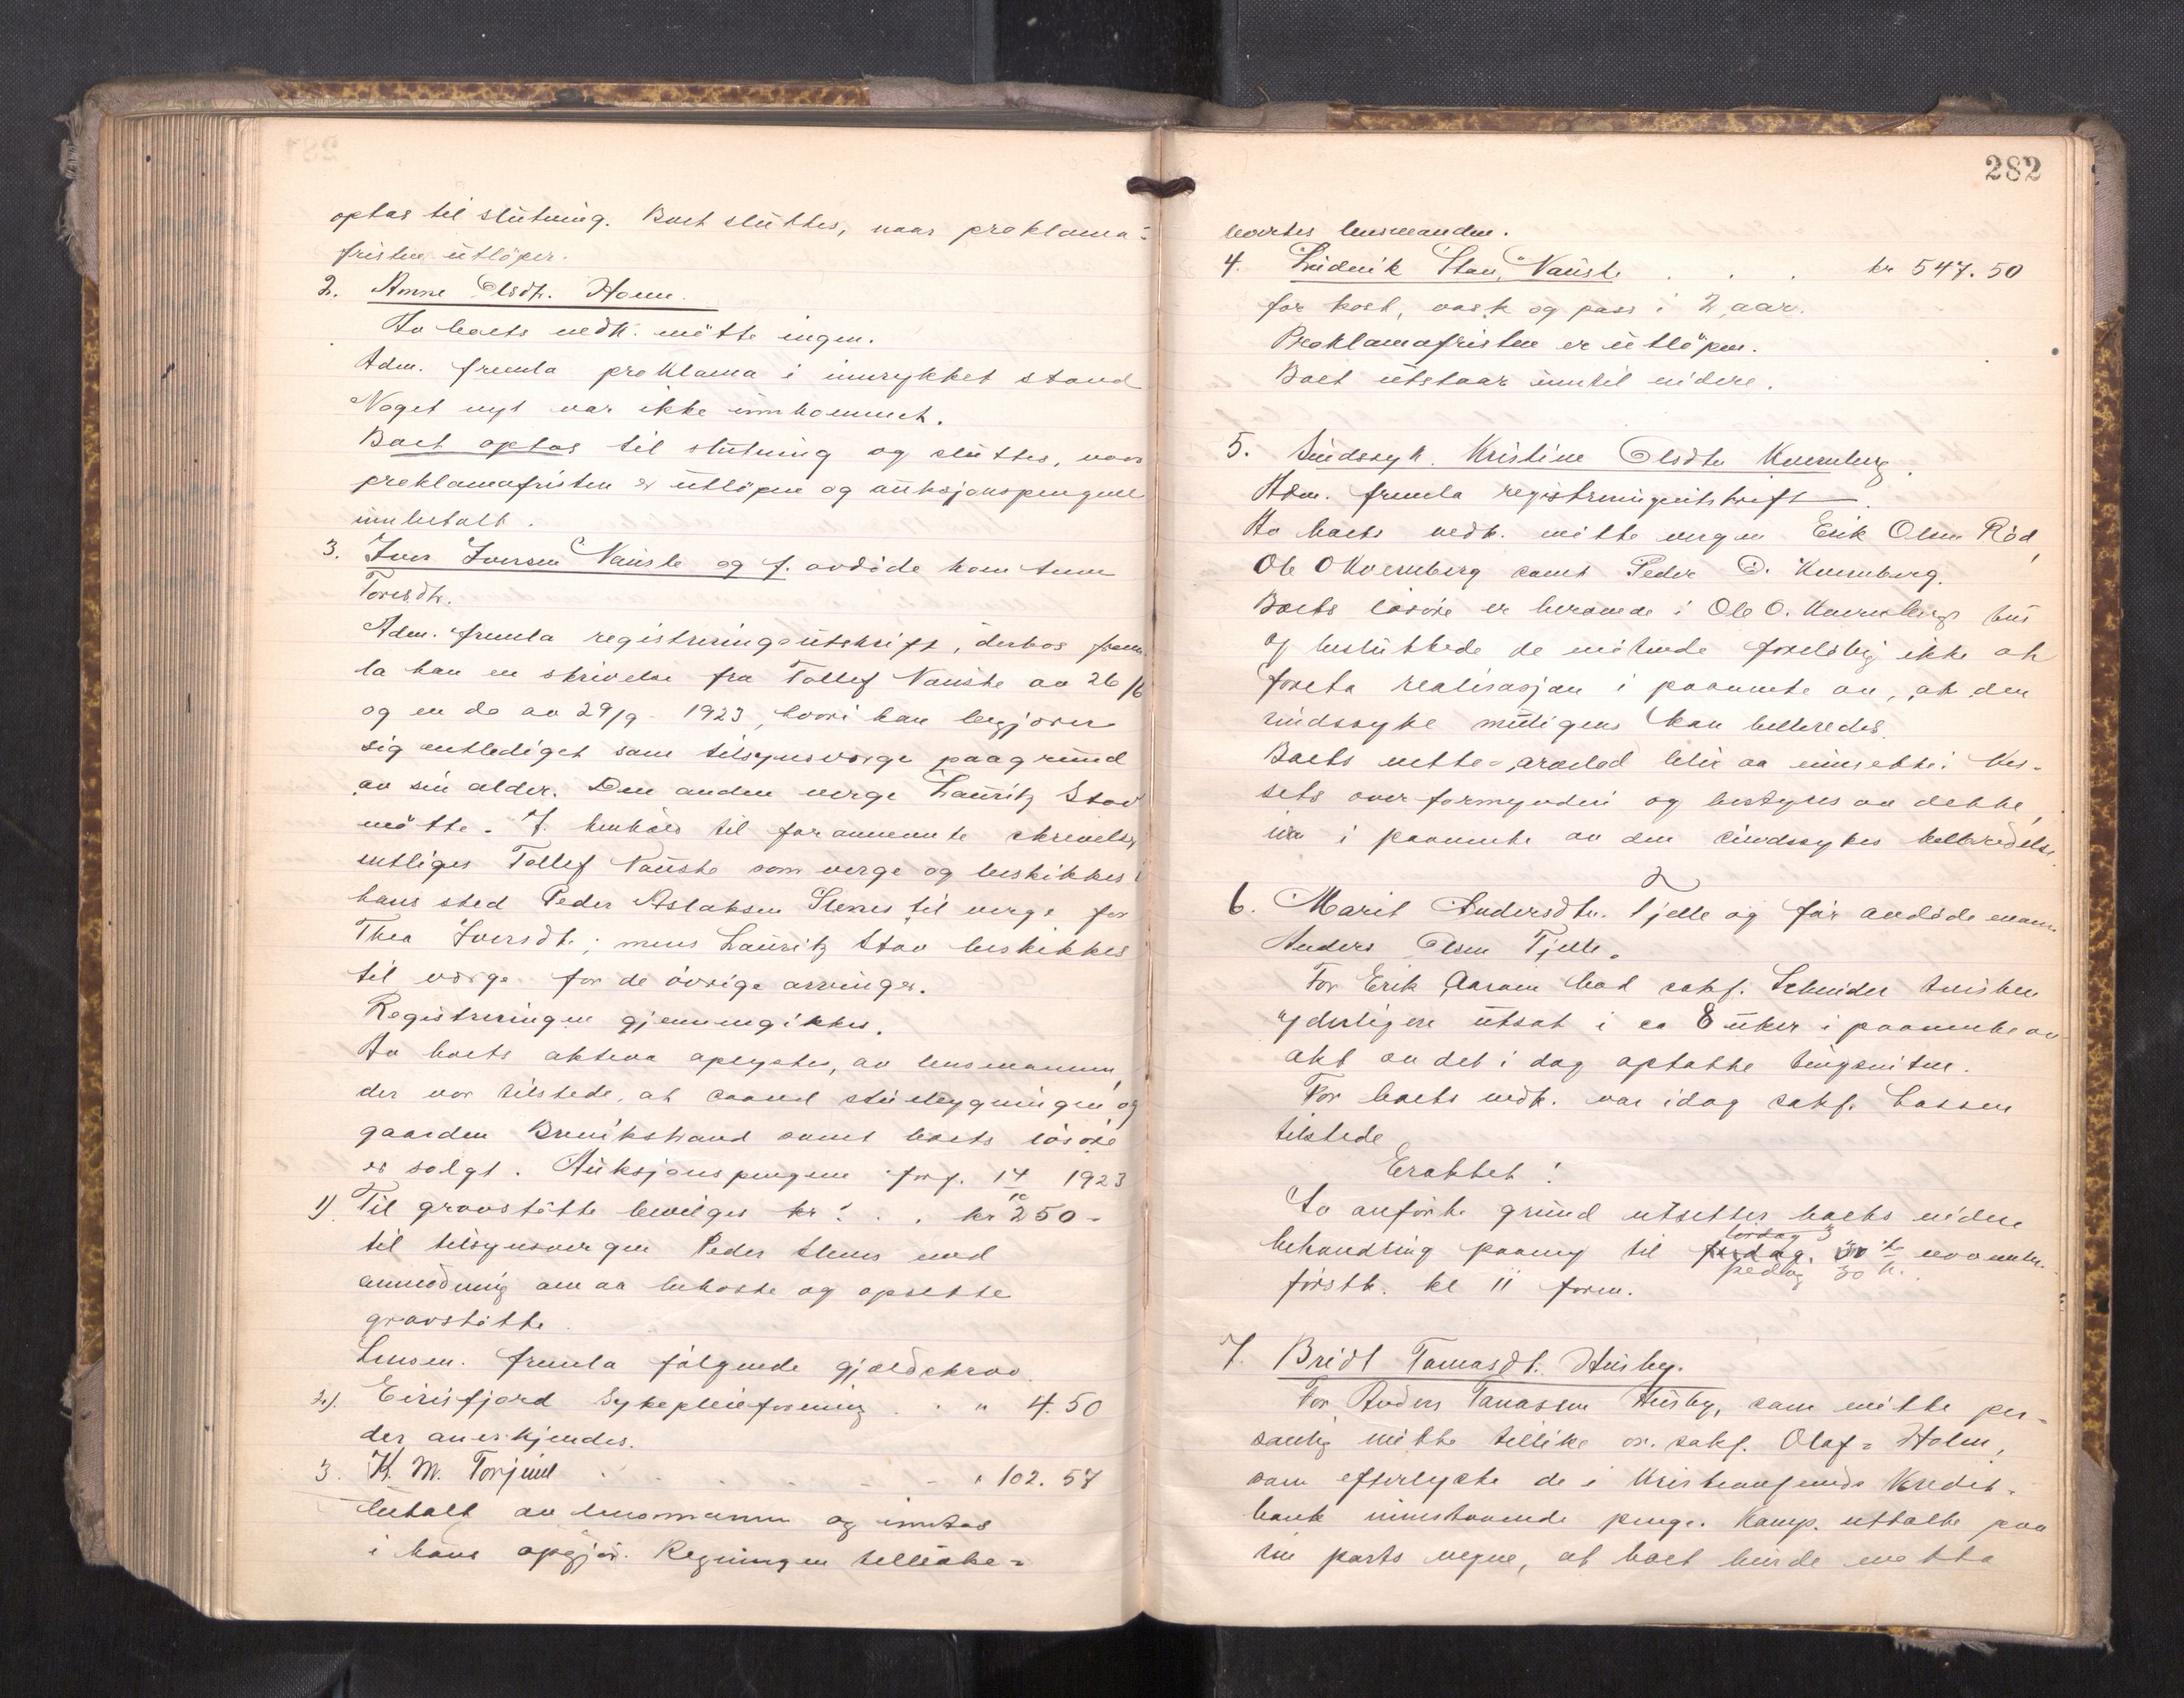 optas til slutning. Boet sluttes, naar proklama-
fristen utlöper.
2. Anne Olsdtr. Hoem.
Av boets vedk. mötte ingen.
Adm. fremla proklama i innrykket stand
Noget nyt var ikke innkommet.
Boet optas til slutning og sluttes, naar
proklamafristen er utlöpen og auksjonspengene
innbetalt.
3. Iver Iversen Nauste og f. avdöde kone Anne
Toresdtr.
Adm. fremla registreringsutskrift, derhos frem-
la han en skrivelse fra Tollef Nauste av 26/6
og en do av 29/9 - 1923, hvori han begjærer
sig entlediget som tilsynsverge paagrund
av sin alder. Den anden verge Lauritz Stav
mötte. I henhold til forannemte skrivelse
entliges Tollef Nauste som verge og beskikkes i
hans sted Peder Aslaksen Stenes til verge for
Thea Iversdtr.; mens Lauritz Stav beskikkes
til verge for de övrige arvinger.
Registreringen gjennemgikkes.
Av boets aktiva oplystes, av lensmannen,
der var tilstede, at saavel stuebygningen og
gaarden Bruikstrand samt boets lösöre
er solgt. Auksjonspengene forf. 14/10 1923
1) Til gravstötte bevilges kr: . . kr 250 -
til tilsynsvergen Peder Stenes med
anmodning om aa bekoste og opsette
gravstötte.
Lensm. fremla fölgende gjældskrav.
2). Eirisfjord Sykepleieforening . . " 4.50
der anerkjendes.
3. K. M. Torjuul . . . . . . " 102.57
betalt av lensmannen og inntas
i hans opgjör. Regningen tilbake-
282
leveртes lensmanden.
4. Ludvik Stav, Nauste . . . kr 547.50
for kost, vask og pass i 2 aar.
Proklamafristen er utlöpen.
Boet utstaar inntil videre.
5. Sindssyk. Kristine Olsdtr Kvernberg.
Adm. fremla registreringsutskrift.
Av boets vedk. mötte vergen Erik Olsen Röd,
Ole O Kvernberg samt Peder O. Kvernberg.
Boets lösöre er beroende i Ole O. Kvernbergs hus
og besluttede de mötende forelöbig ikke at
foreta realisasjon i paavente av, at den
sindssyke muligens kan helbredes.
Boets netto-arvelod blir aa innsette i Nes-
sets overformynderi og bestyres av dette,
i paavente av den sindssykes helbredelse.
6. Marit Andersdtr. Tjelle og før avdöde mann
Anders Olsen Tjelle.
For Erik Aarøen bad sakf. Schnider tvisten
yderligere utsat i ca 8 uker i paavente av
akt av det i dag optatte tingsvitne.
For boets vedk. var idag sakf. Lassen
tilstede
Eraktet:
Av anförte grund utsettes boets videre
lördag 3
behandling paany til fredag 30te november
fredag 30 n.
förstk. kl 11 form.
7. Bridt Tomasdt. Husby.
For Anders Tomassen Husby, som mötte per-
sonlig mötte tillike or. sakf. Olaf Holm,
som efterlyste de i Kristiansunds Kredit-
bank innestaaende penge. Komp. uttalte paa
sin parts vegne, at boet burde motta